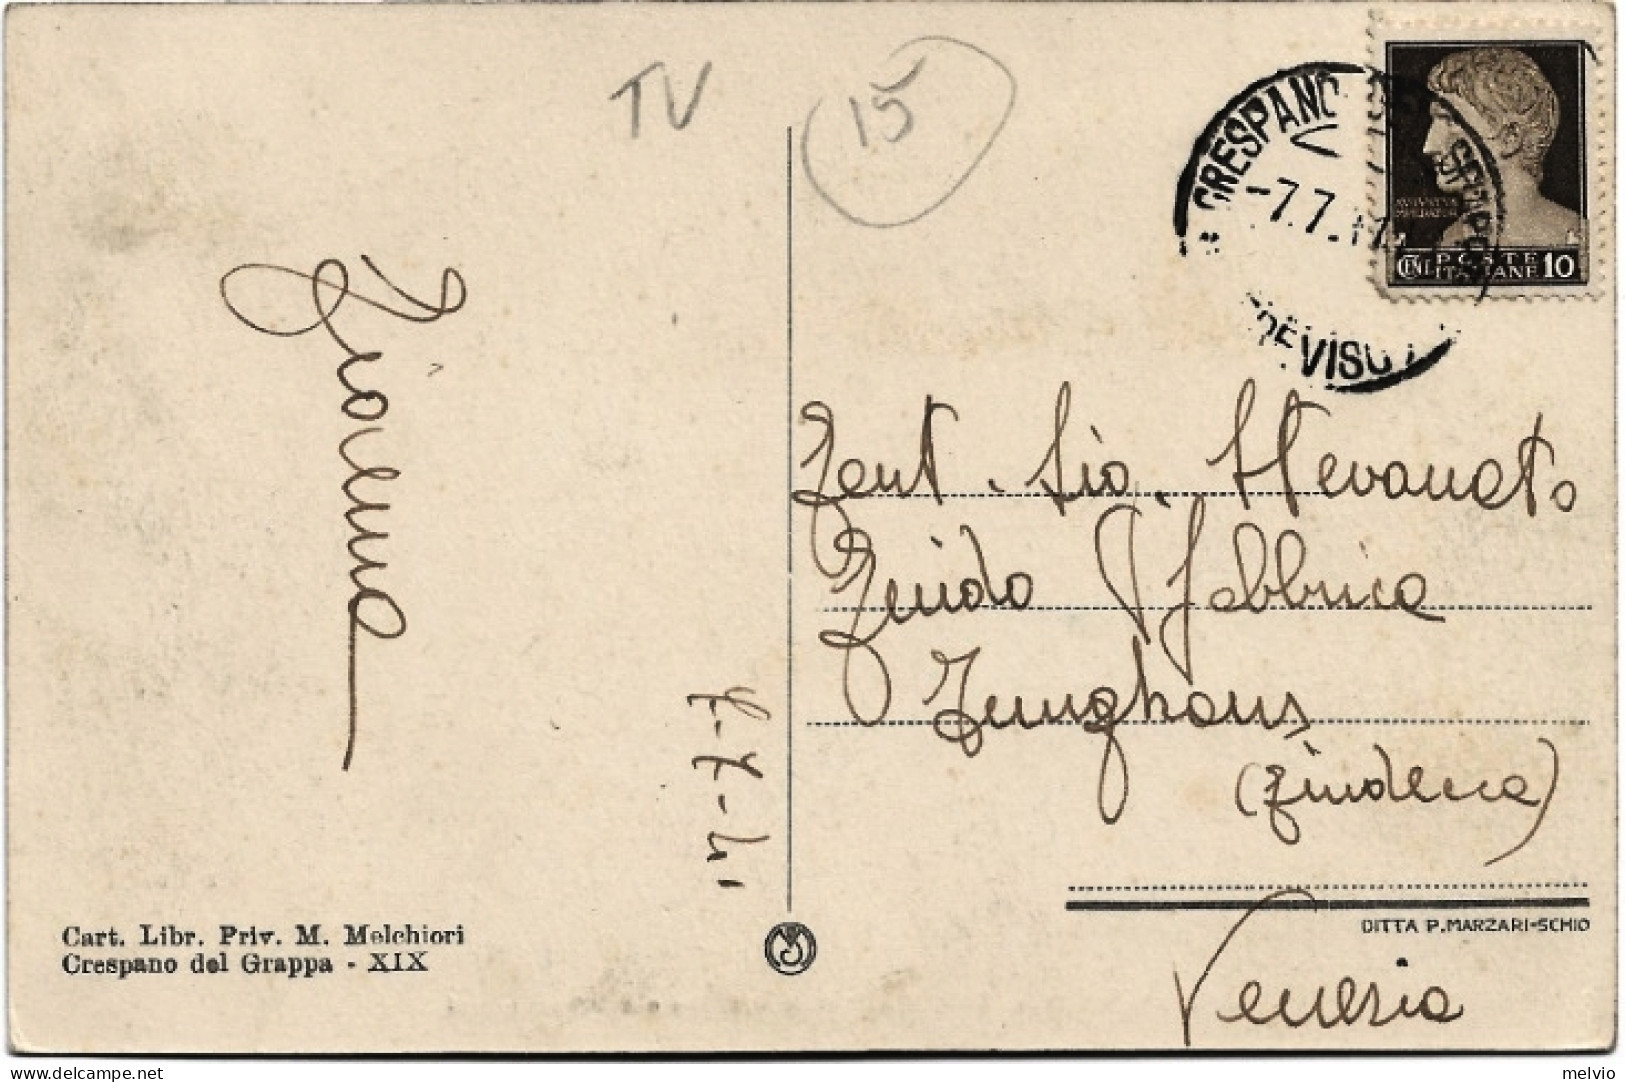 TV
15
CRESPANO DEL GRAPPA
-7.7.41
TREVISO
AVGVSTVS
CENT. POSTE ITALIANE 10
Gent. Sig. Stevanato
Guido Fabbrica
Junghans
(Giudecca)
Venezia
7-7-41
Cart. Libr. Priv. M. Melchiori
Crespano del Grappa - XIX
DITTA P. MARZARI-SCHIO
delcampe.net
melvio